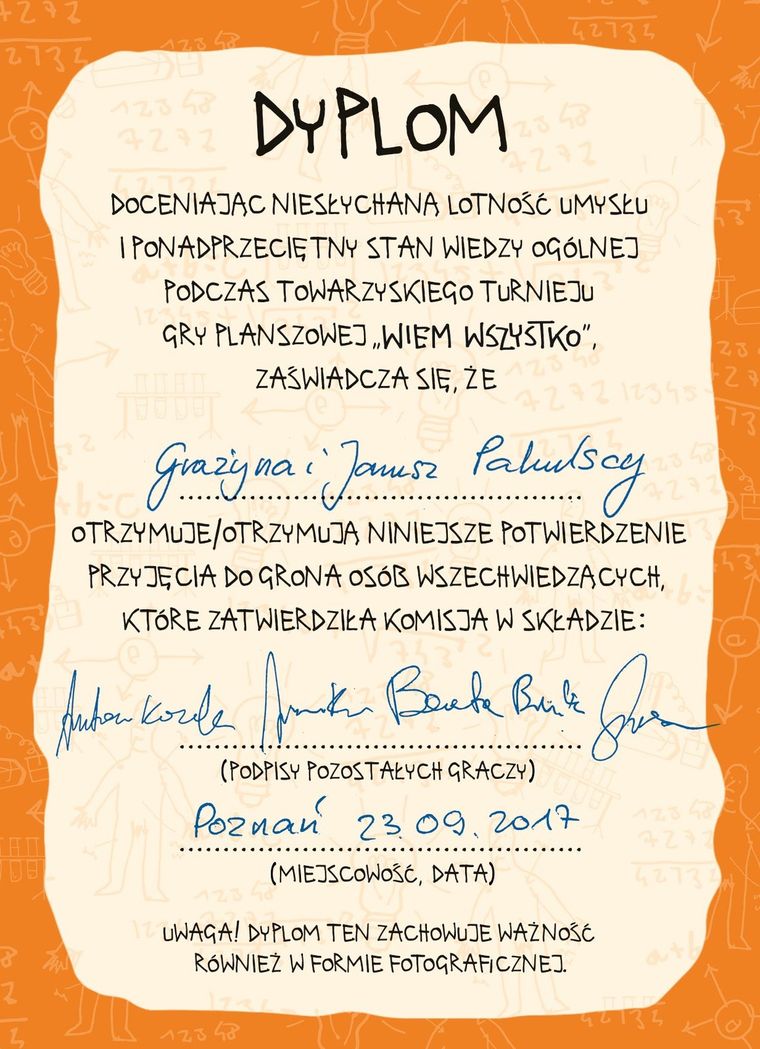 DYPLOM
DOCENIAJĄC NIESŁYCHANĄ LOTNOŚĆ UMYSŁU
I PONADPRZECIĘTNY STAN WIEDZY OGÓLNEJ
PODCZAS TOWARZYSKIEGO TURNIEJU
GRY PLANSZOWEJ „WIEM WSZYSTKO”,
ZAŚWIADCZA SIĘ, ŻE
Grażyna i Janusz Pakulscy
OTRZYMUJE/OTRZYMUJĄ NINIEJSZE POTWIERDZENIE
PRZYJĘCIA DO GRONA OSÓB WSZECHWIEDZĄCYCH,
KTÓRE ZATWIERDZIŁA KOMISJA W SKŁADZIE:
Beata
(PODPISY POZOSTAŁYCH GRACZY)
Poznań 23.09.2017
(MIEJSCOWOŚĆ, DATA)
UWAGA! DYPLOM TEN ZACHOWUJE WAŻNOŚĆ
RÓWNIEŻ W FORMIE FOTOGRAFICZNEJ.